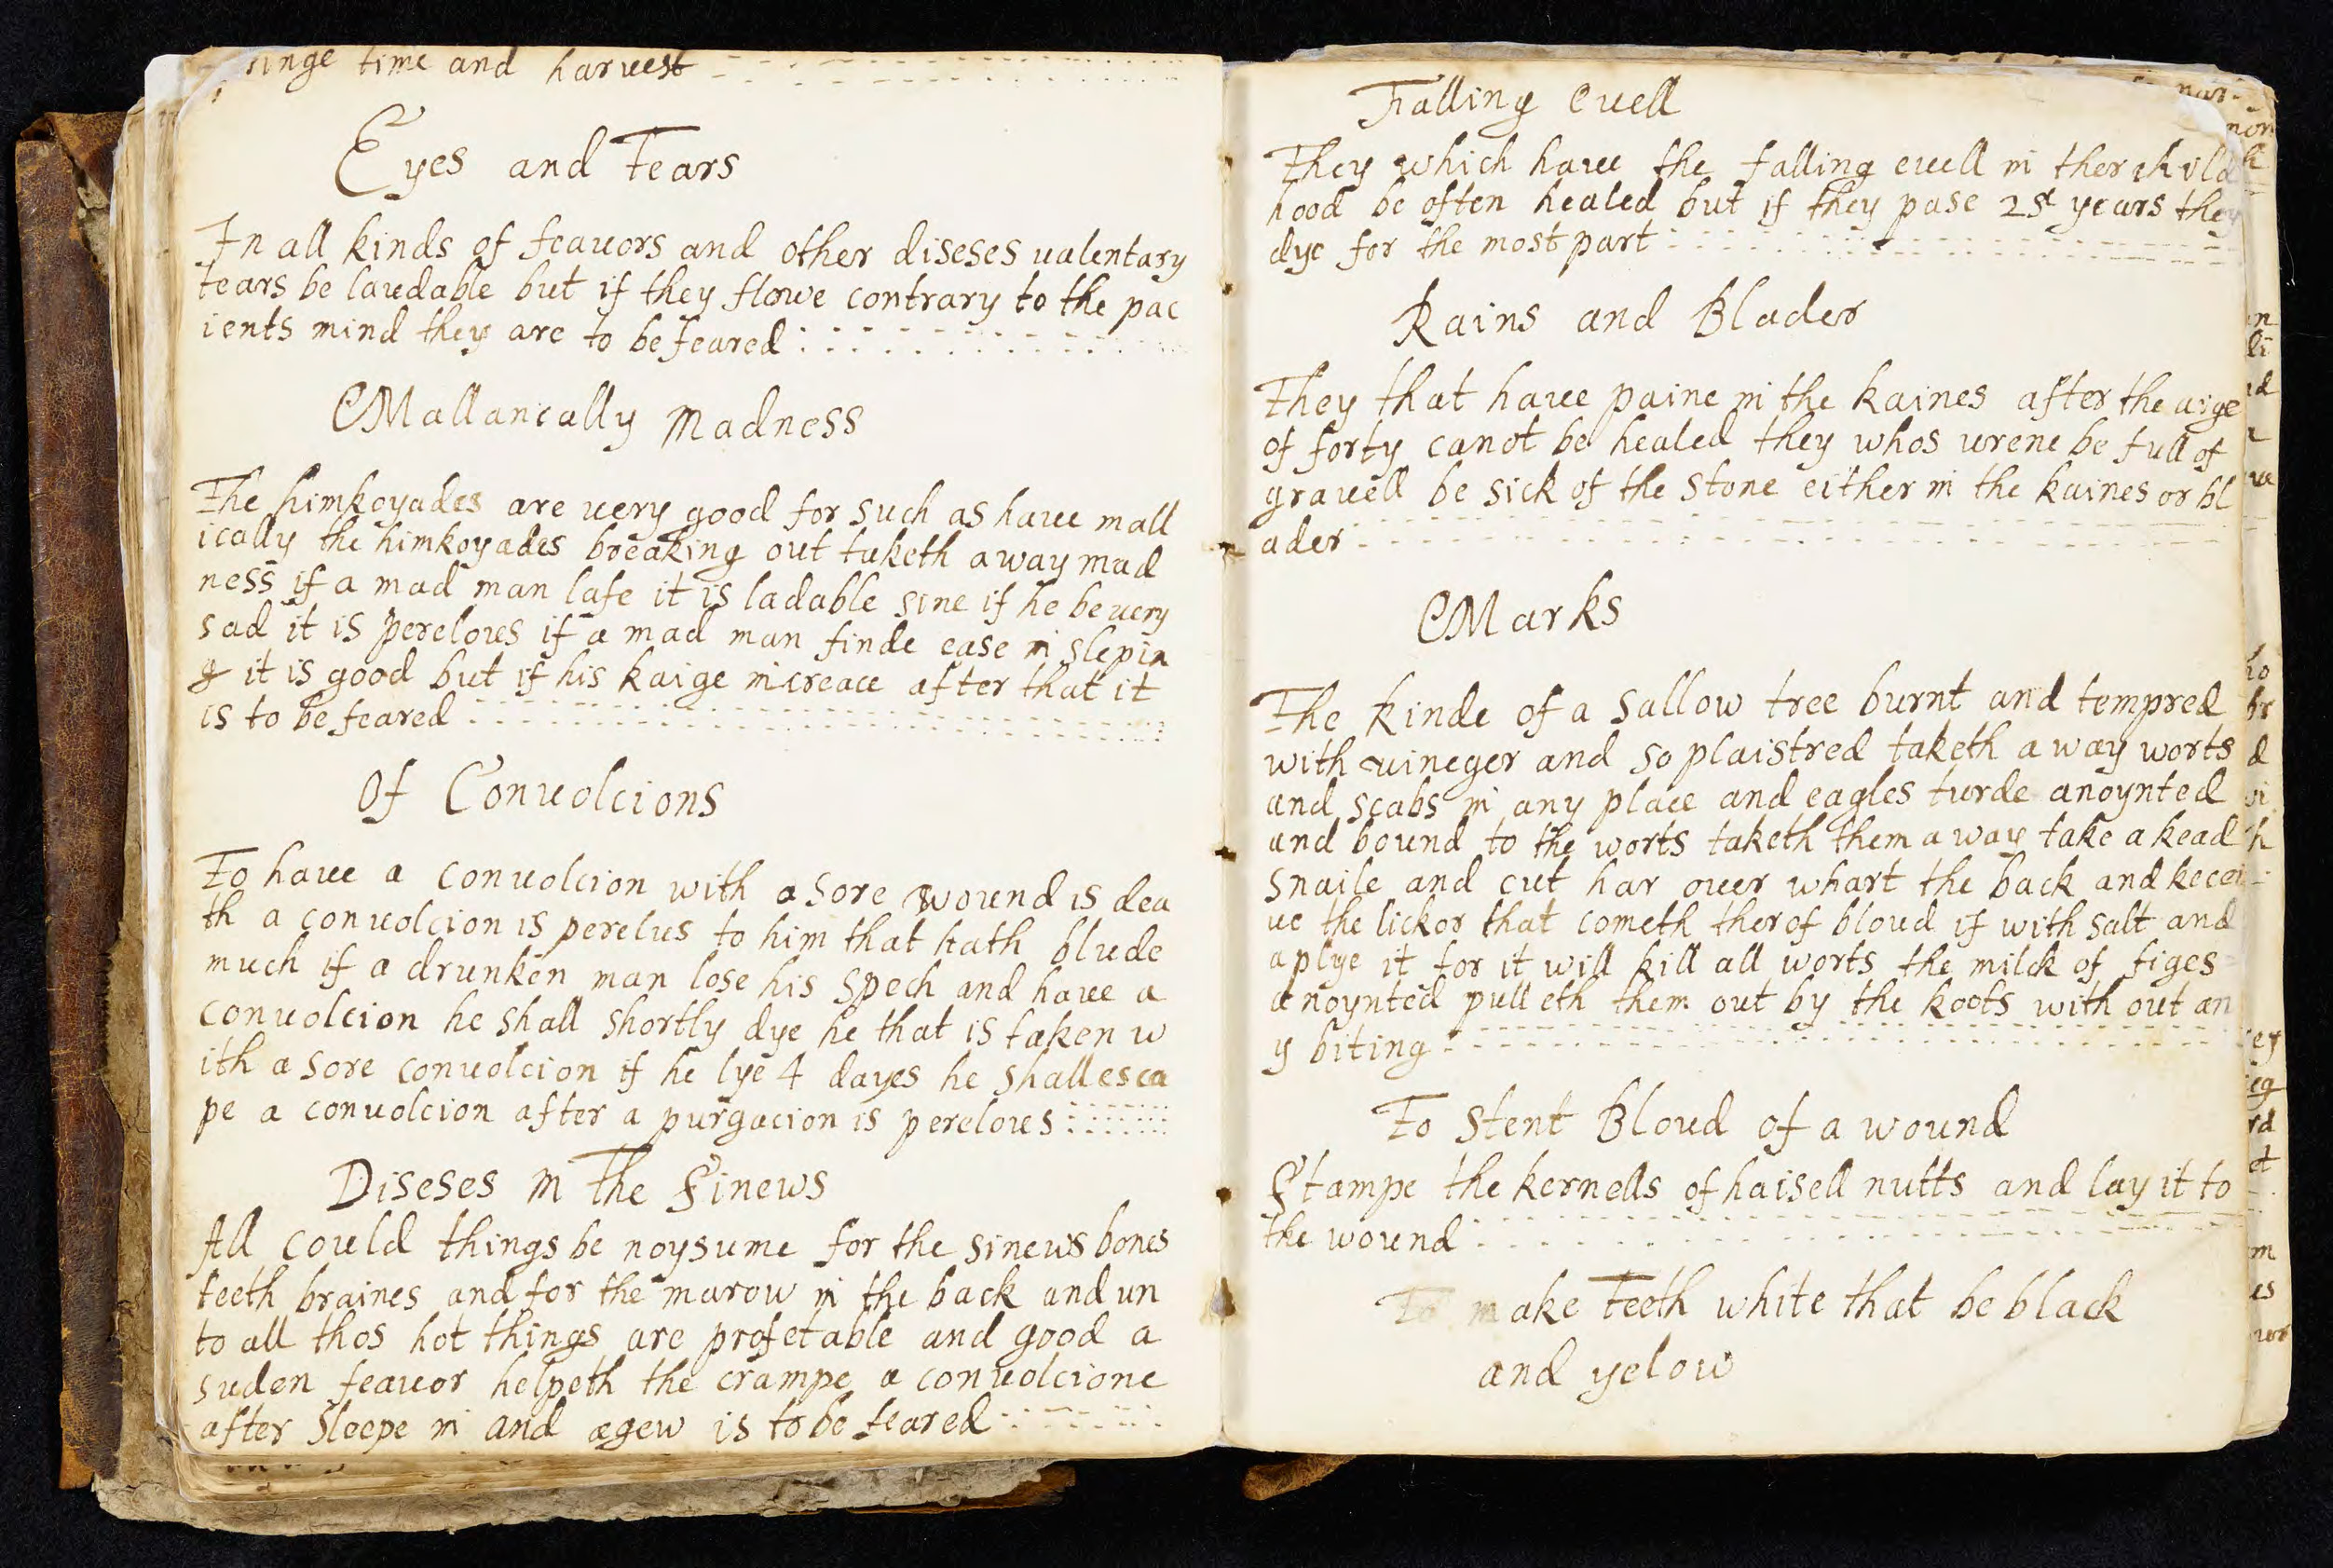 ringe time and harvest
Eyes and Tears
In all kinds of feavors and other diseses valentary
tears be laudable but if they flowe contrary to the pac
ients mind they are to be feared
Mallancally Madness
The himroyades are very good for such as have mall
ically the himroyades breaking out taketh away mad
ness if a mad man lafe it is ladable sine if he be very
sad it is perelous if a mad man finde ease in slepin
g it is good but if his raige increace after that it
is to be feared
Of Convolcions
To have a convolcion with a sore wound is dea
th a convolcion is perelus to him that hath blude
much if a drunken man lose his spech and have a
convolcion he shall shortly dye he that is taken w
ith a sore convolcion if he lye 4 dayes he shall esca
pe a convolcion after a purgacion is perelous
Diseses in The Sinews
All could things be noysume for the sinews bones
teeth braines and for the marow in the back and un
to all thos hot things are profetable and good a
suden feavor helpeth the crampe a convolcione
after sleepe in and agew is to be feared
Falling evell
They which have the falling evell in ther child
hood be often healed but if they pase 25 years they
dye for the most part
Rains and Blader
They that have paine in the raines after the aige
of forty canot be healed they whos urene be full of
gravell be sick of the stone either in the raines or bl
ader
Marks
The rinde of a sallow tree burnt and tempred
with vineger and so plaistred taketh away worts
and scabs in any place and eagles turde anoynted
and bound to the worts taketh them away take a read
snaile and cut har over whart the back and recei
ve the lickor that cometh therof bloud if with salt and
aplye it for it will kill all worts the milck of figes
anoynted pulleth them out by the roots with out an
y biting
To Stent Bloud of a wound
Stampe the kernells of haisell nutts and lay it to
the wound
To make Teeth white that be black
and yelow